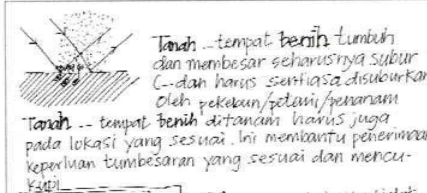 Tanah -- tempat benih tumbuh
dan membesar seharusnya subur
(--dan harus sentiasa disuburkan
oleh pekebun/petani/penanam
Tanah -- tempat benih ditanam harus juga
pada lokasi yang sesuai. Ini membantu penerimaan
keperluan tumbesaran yang sesuai dan mencu-
kupi